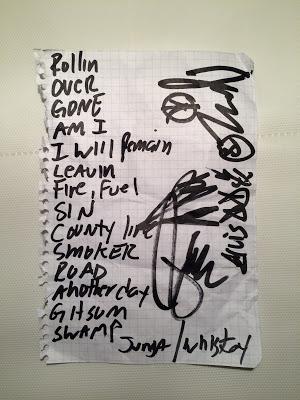 Rollin
OVER
GONE
AM I
I Will Remain
LEAVIN
Fire, Fuel
SIN
County line
SMOKER
ROAD
Another day
GITSUM
SWAMP